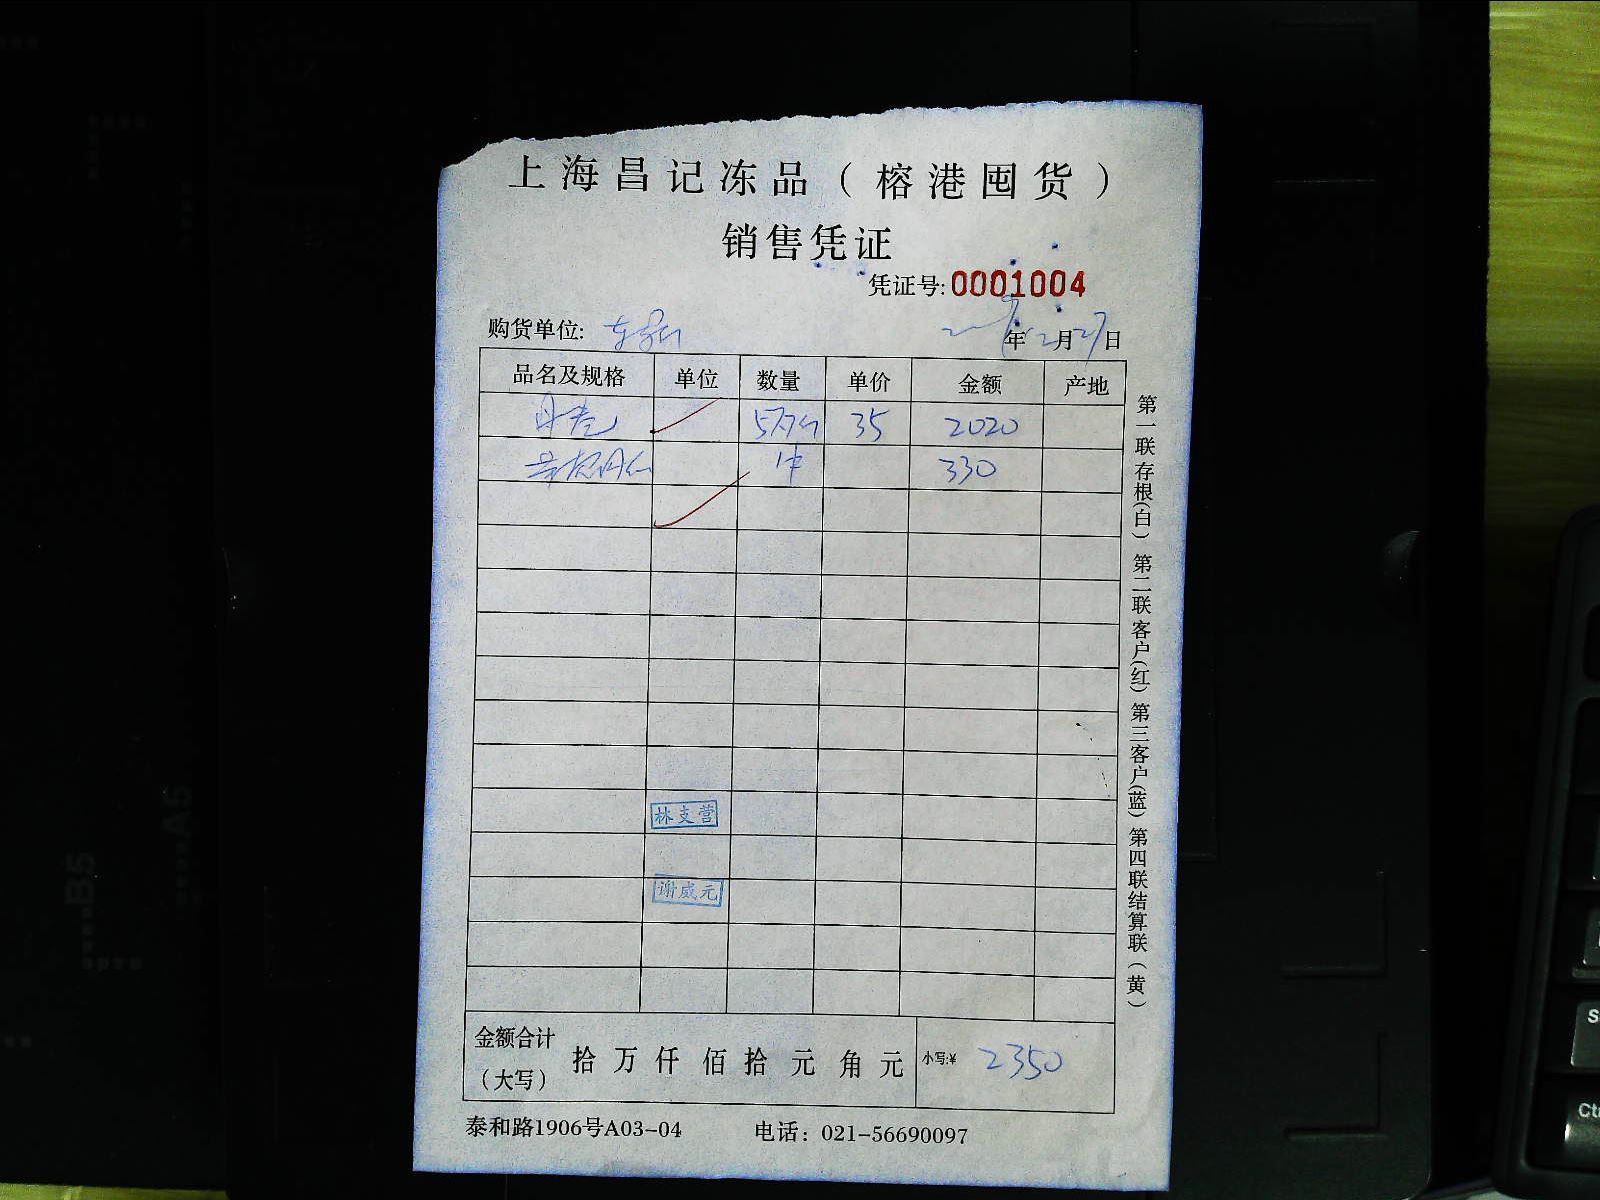 上海昌记冻品（榕港囤货）
销售凭证
凭证号:0001004
购货单位: 年12月27日
品名及规格 单位 数量 单价 金额 产地
35 2020
1件 330
林支营
谢威元
金额合计（大写） 拾 万 仟 佰 拾 元 角 元 小写:¥ 2350
泰和路1906号A03-04 电话：021-56690097
第一联存根(白) 第二联客户(红) 第三客户(蓝) 第四联结算联(黄)
B5
A5